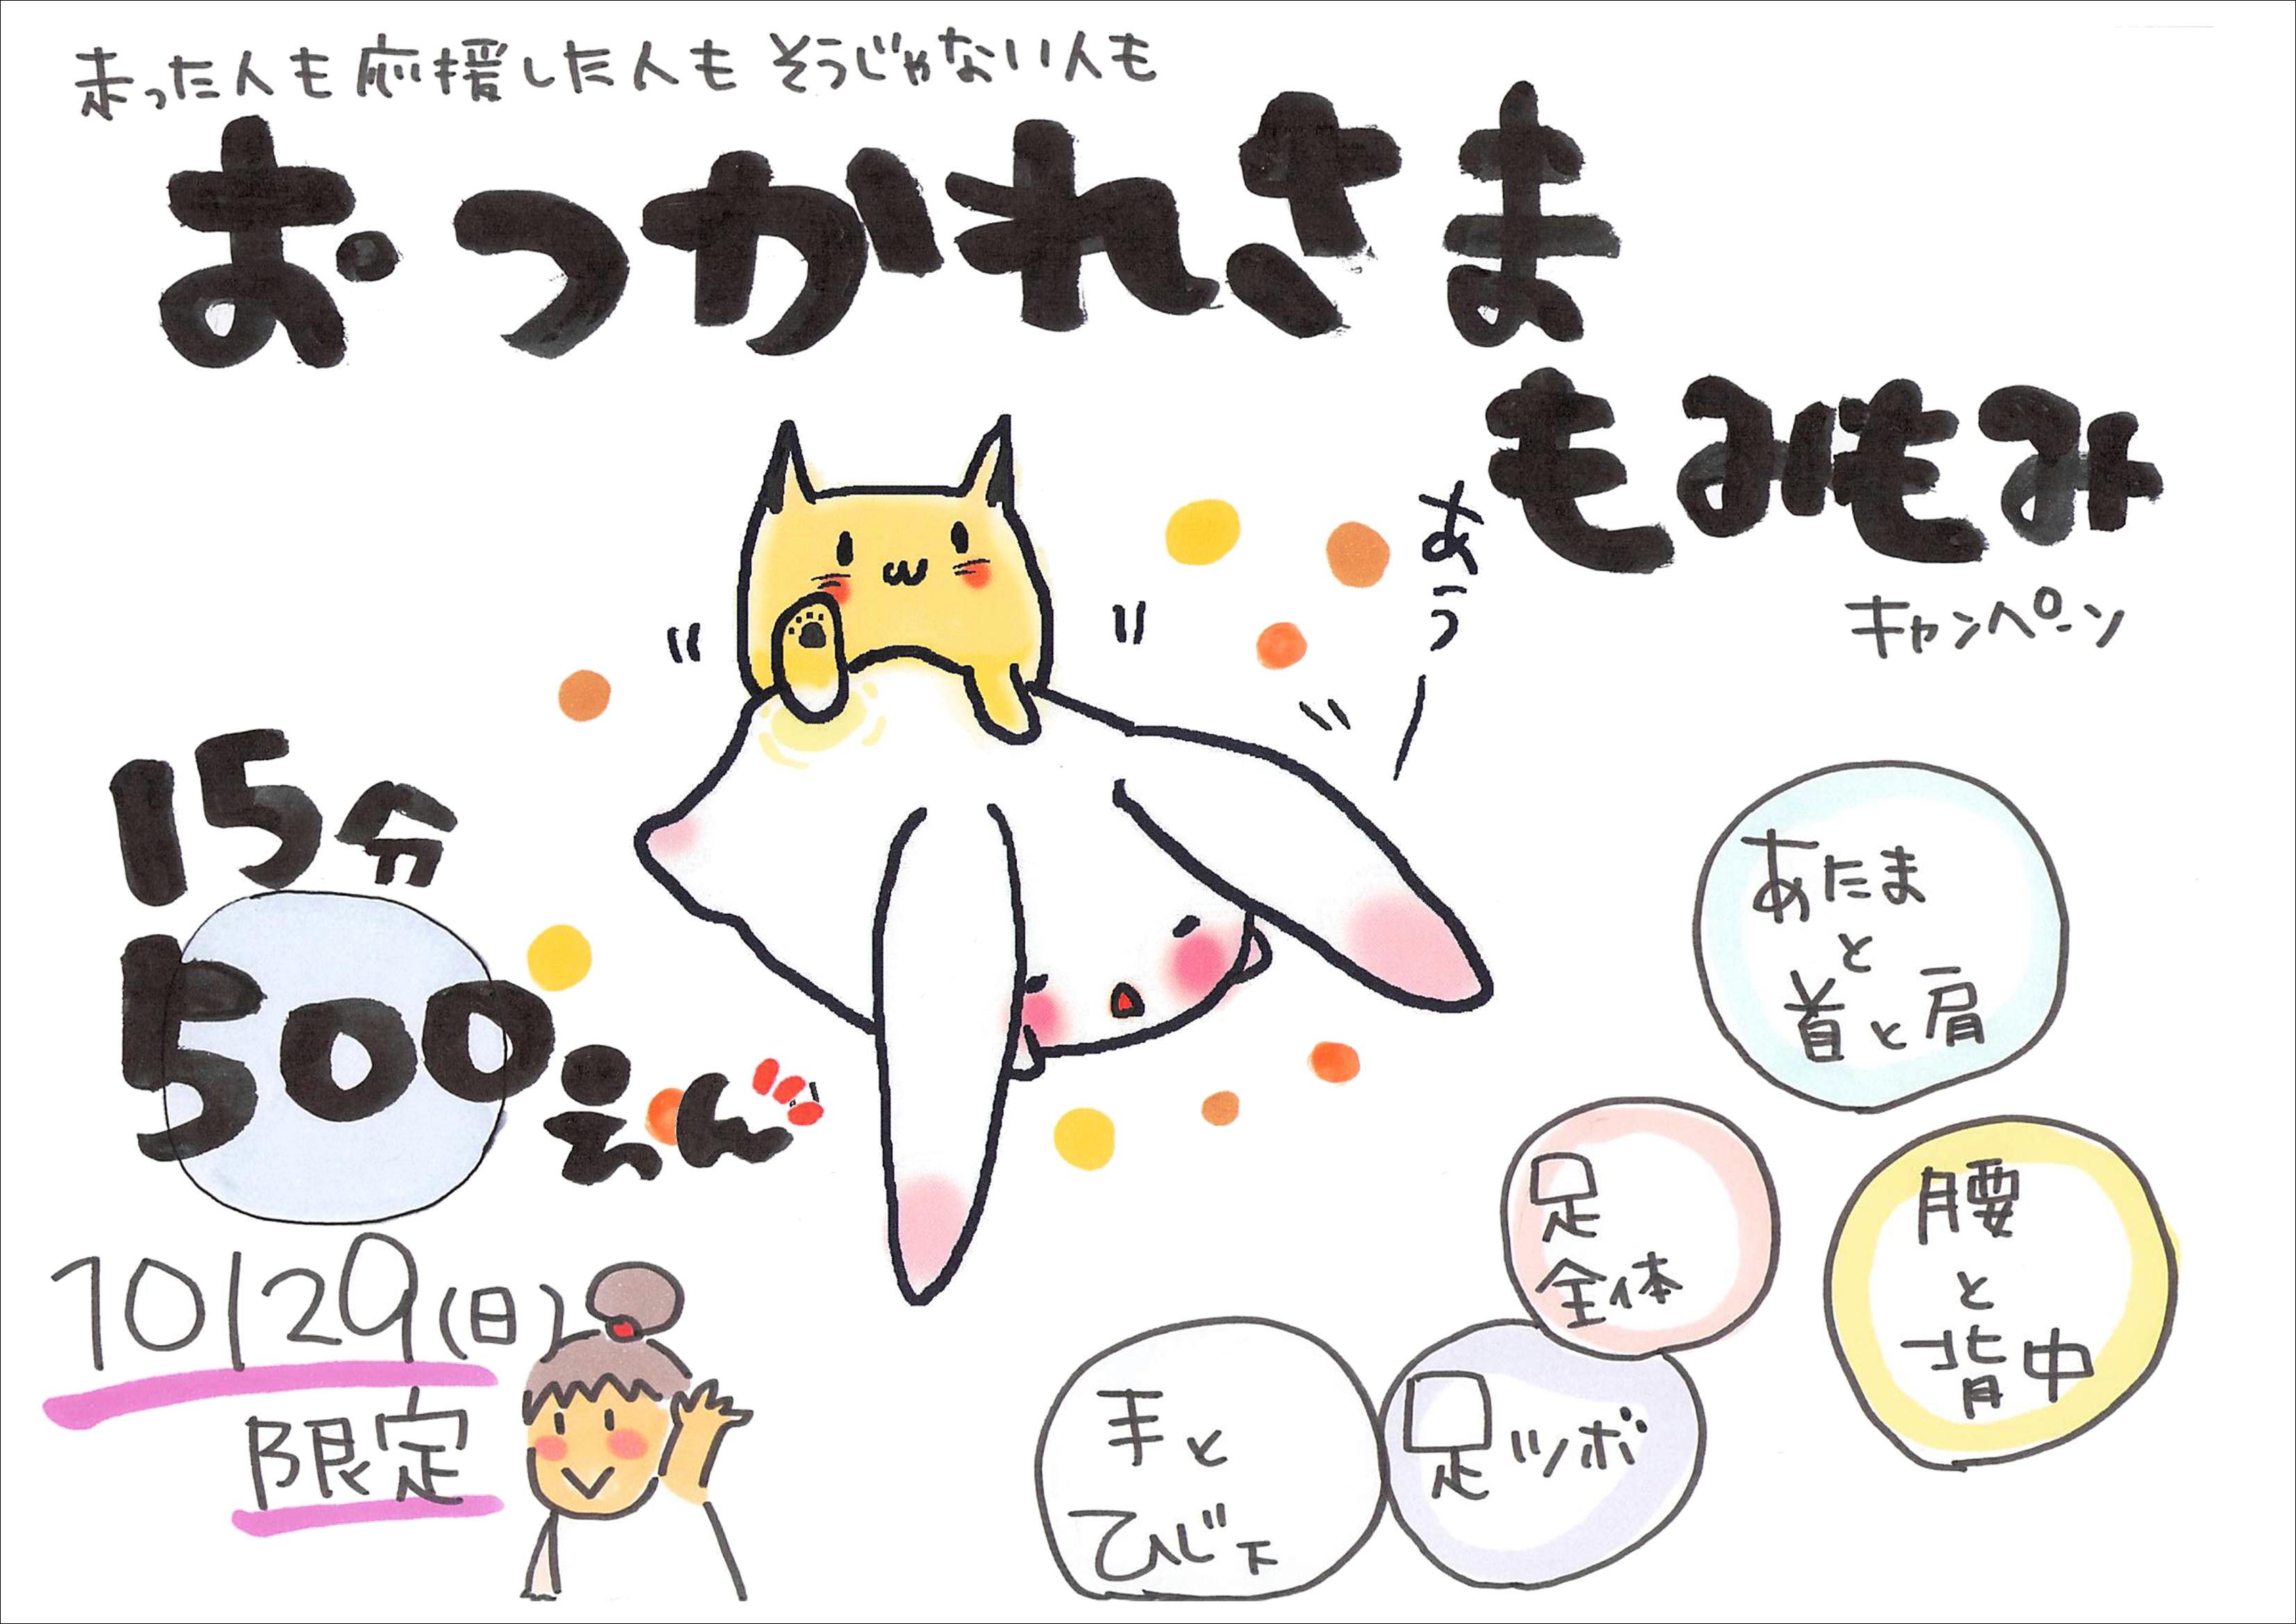 走った人も応援した人もそうじゃない人も
おつかれさま
もみもみ
キャンペーン
あうー
15分
500えん
10/29(日)
限定
あたま
と
首と肩
足
全体
腰
と
背中
手と
ひじ下
足ツボ